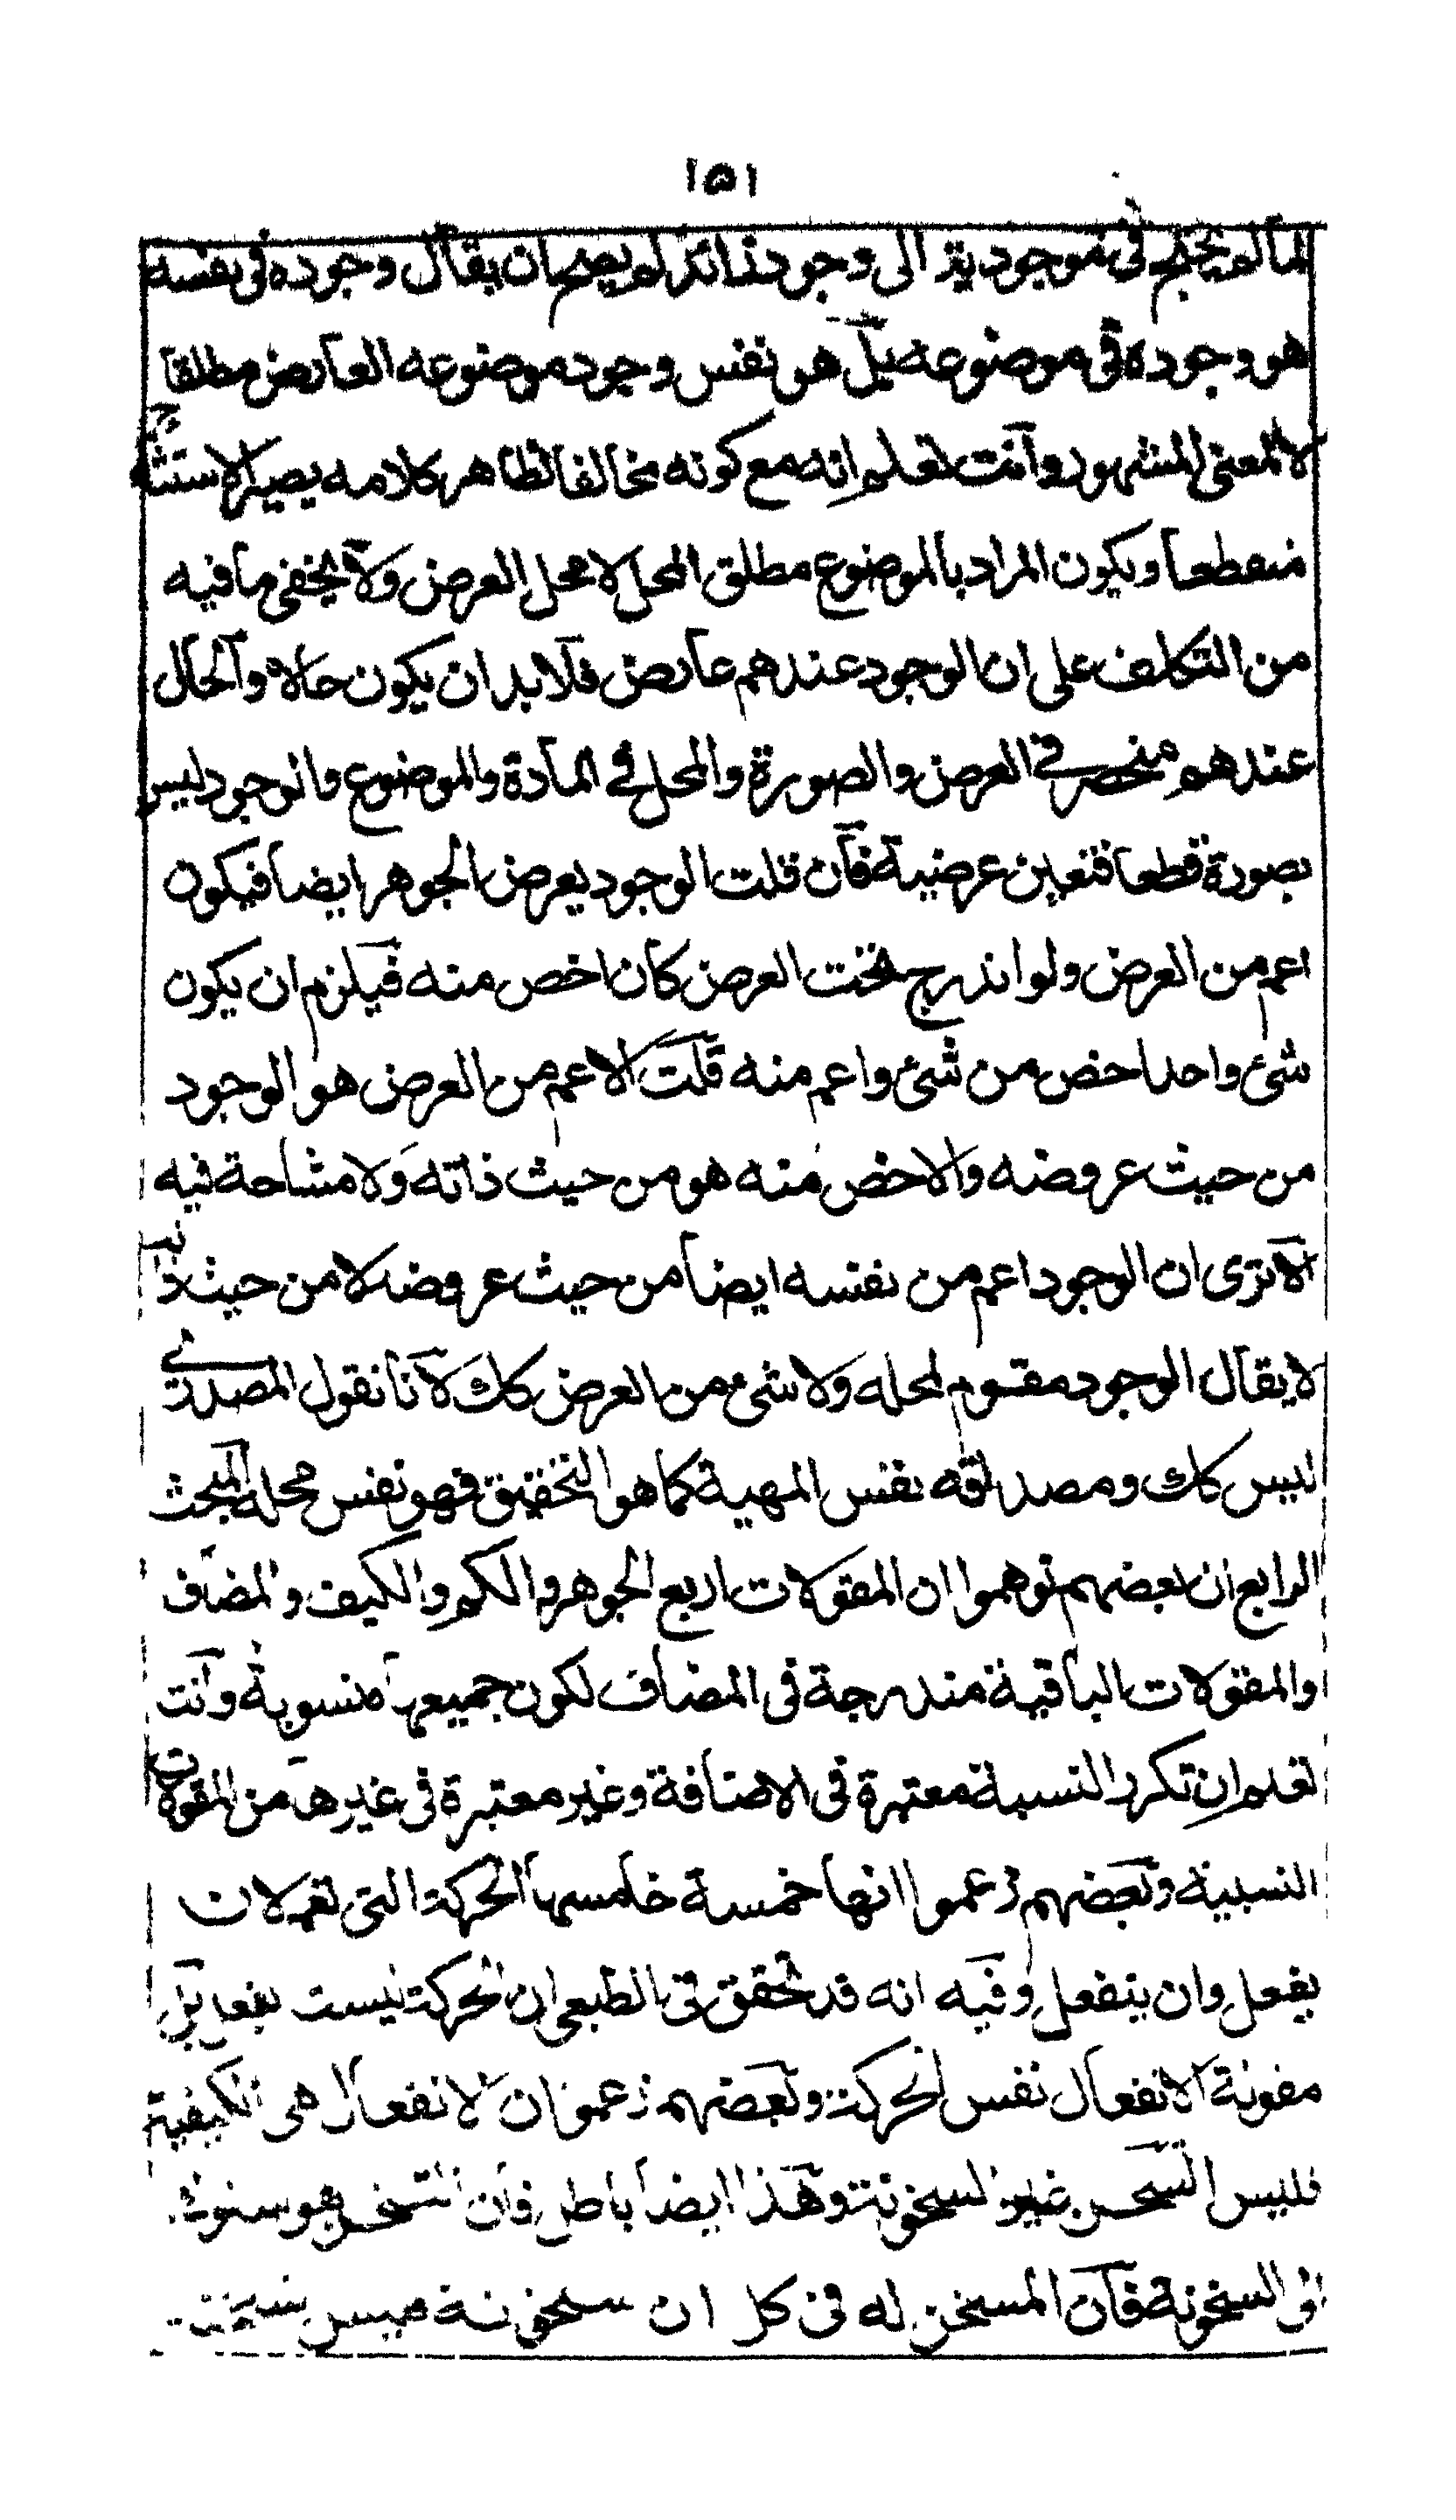 ١٥١
لما لم يحتج فى موجوديته الى وجود زائد لم يصح ان يقال وجوده فى نفسه
هو وجوده فى موضوعه بل هو نفس وجود موضوعه العارض مطلقا
لا المعنى المشهور وانت تعلم انه مع كونه مخالفا لظاهر كلامه يصير الاستثناء
منقطعا ويكون المراد بالموضوع مطلق المحل لا محل العرض ولا يخفى ما فيه
من التكلف على ان الوجود عندهم عارض فلا بد ان يكون حالا والحال
عندهم منحصر فى العرض والصورة والمحل فى المادة والموضوع والوجود ليس
بصورة قطعا فتعين عرضيته فان قلت الوجود يعرض الجوهر ايضا فيكون
اعم من العرض ولو اندرج تحت العرض كان اخص منه فيلزم ان يكون
شئ واحد اخص من شئ واعم منه قلت الاعم من العرض هو الوجود
من حيث عروضه والاخص منه هو من حيث ذاته ولا مشاحة فيه
الا ترى ان الوجود اعم من نفسه ايضا من حيث عروضه لا من حيث ذاته
لا يقال الوجود مقوم لمحله ولا شئ من العرض كك لانا نقول المصدرى
ليس كك ومصداقه نفس المهية كما هو التحقيق فهو نفس محله المبحث
الرابع ان بعضهم توهموا ان المقولات اربع الجوهر والكم والكيف والمضاف
والمقولات الباقية مندرجة فى المضاف لكون جميعها منسوبة وانت
تعلم ان تكرر النسبة معتبرة فى الاضافة وغير معتبرة فى غيرها من المقولات
النسبية وبعضهم زعموا انها خمسة خامسها الحركة التى تعم لان
يفعل وان ينفعل وفيه انه قد تحقق فى الطبعى ان الحركة ليست بفعل بل
مقولة الانفعال نفس الحركة وبعضهم زعموا ان الانفعال هى الكيفية
فليس التسخن غير السخونة وهذا ايضا باطل فان التسخن هو سلوك
الى السخونة فان المسخن له فى كل ان سخونة فليس